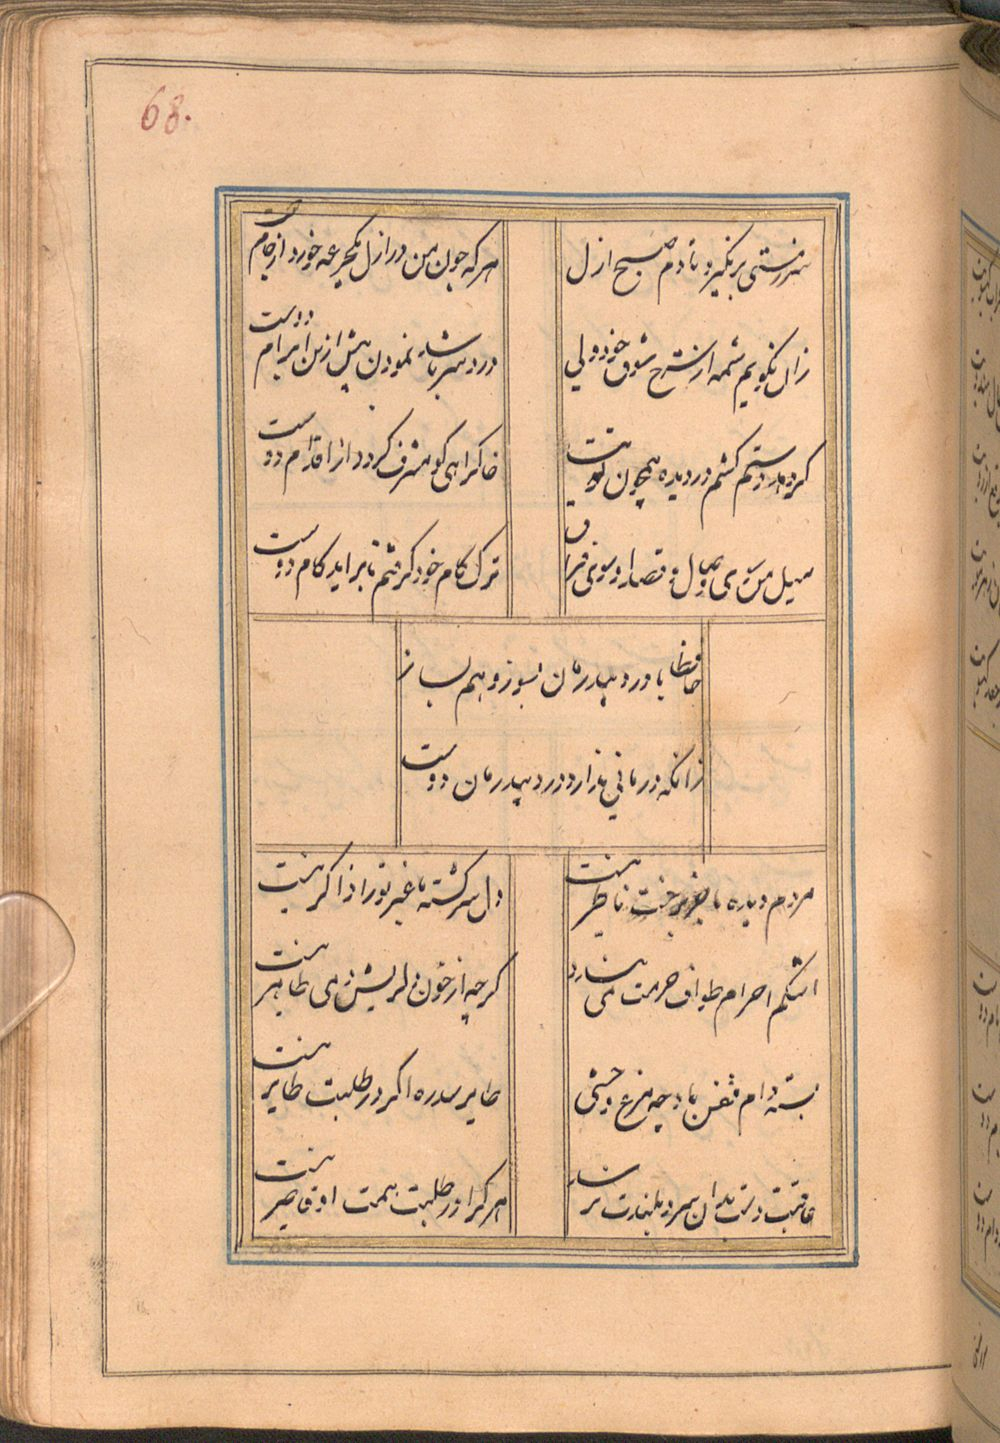 68.
سر ز مستی بر نگیرد تا دم صبح ازل
هر که چون من در ازل یکجرعه خورد از جام دوست
زان نگویم شمه از شرح شوق خود ولی
درد سر باشد نمودن بیش ازین ابرام دوست
کر دهد دستم کشم در دیده همچون توتیا
خاکراهی کو مشرف کردد از اقدام دوست
میل من سوی وصال و قصد او سوی فراق
ترک کام خود کرفتم تا براید کام دوست
حافظا با درد بیدرمان بسوز و هم بساز
زانکه درمانی ندارد درد بیدرمان دوست
مردم دیده ما جز برخت ناظر نیست
دل سرکشته ما غیر تورا ذاکر نیست
اشکم احرام طواف حرمت می بندد
کرچه از خون دل ریش دمی طاهر نیست
بسته دام قفس باد چه مرغ وحشی
طایر سدره اکر در طلبت طایر نیست
عاقبت دست بدان سرو بلندت برسد
هر کرا در طلبت همت او قاصر نیست